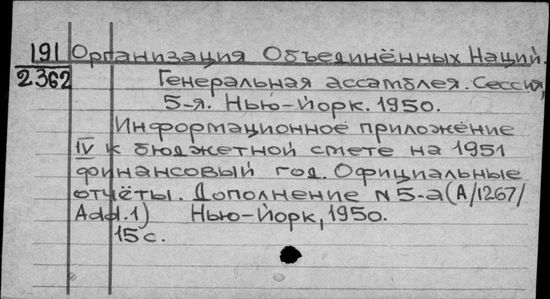 191 Организация Объединённых Наций.
2362 Генеральная ассамблея. Сессия,
5-я. Нью-Йорк. 1950.
Информационное приложение
IV к бюджетной смете на 1951
финансовый год. Официальные
отчёты. Дополнение N 5-а (A/1267/
Add.1) Нью-Йорк, 1950.
15 с.